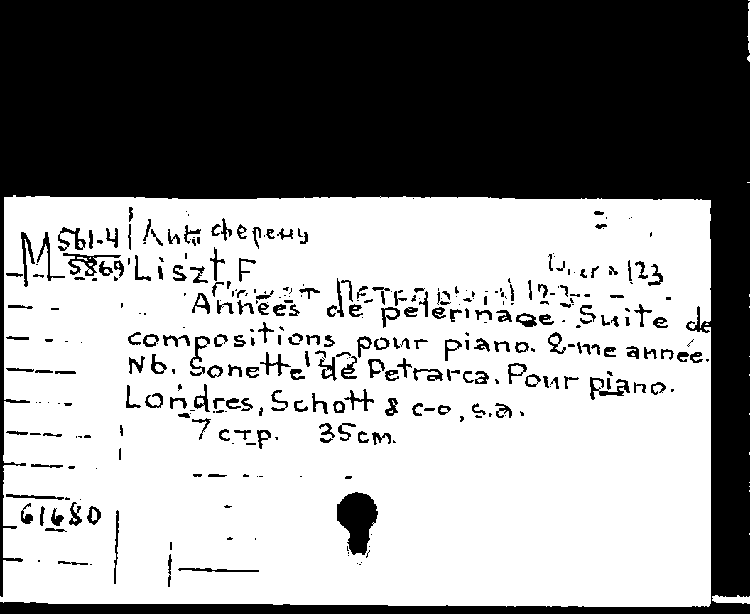 М 561-4 Лист Ференц
5869 Liszt F 123
Сонет Петрарки 123
Années de pelerinage. Suite de
compositions pour piano. 2-me année.
Nb. Sonette 123 de Petrarca. Pour piano.
Londres, Schott & c-o, s.a.
7 стр. 35 cm.
61680